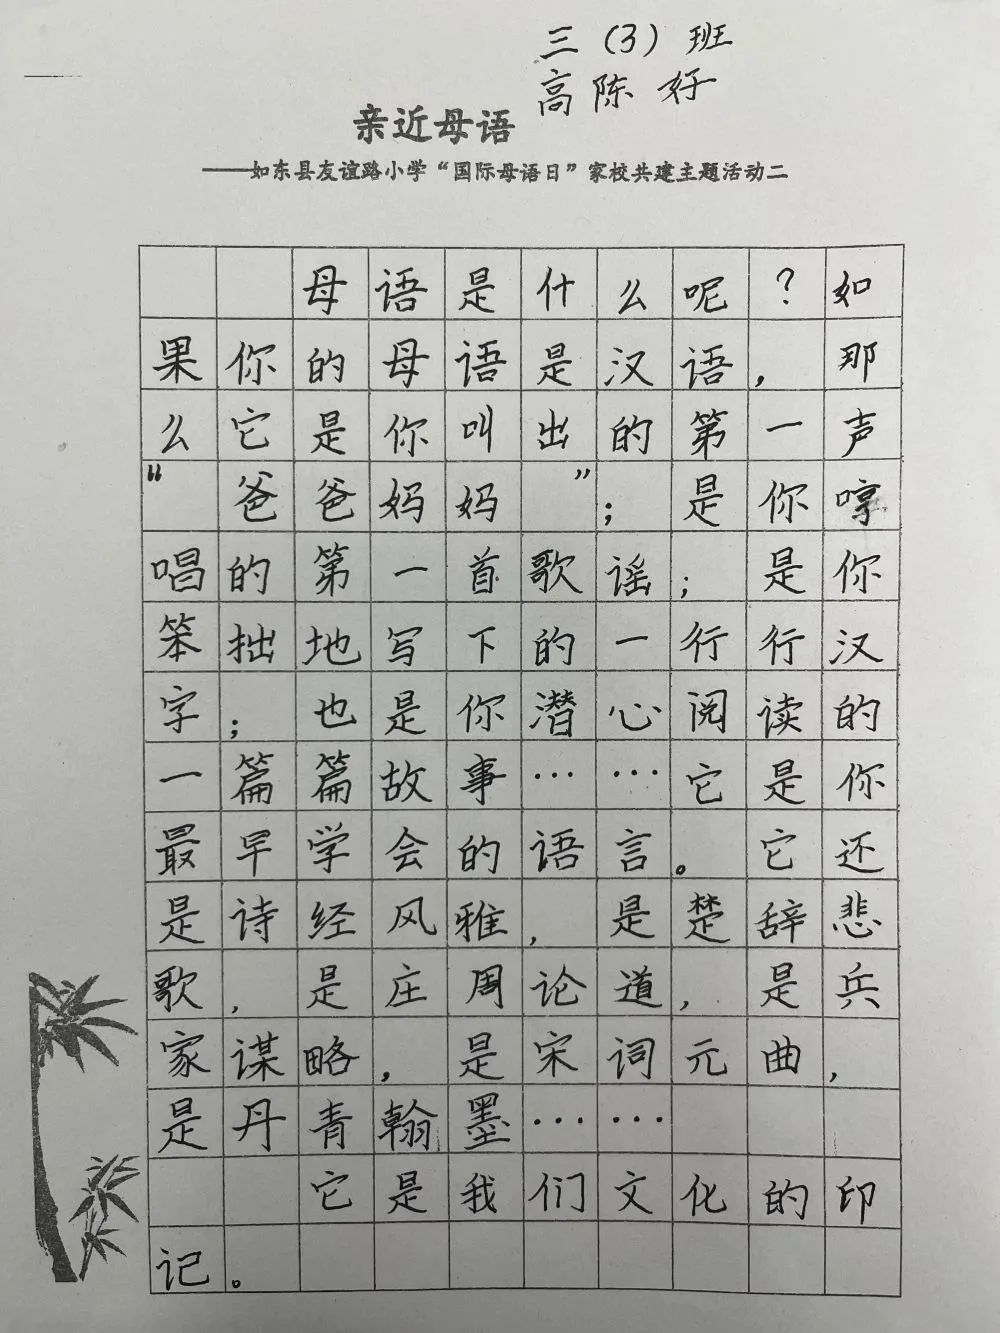 三（3）班
高陈好
亲近母语
——如东县友谊路小学“国际母语日”家校共建主题活动二
母语是什么呢？如
果你的母语是汉语，那
么它是你叫出的第一声
“爸爸妈妈”；是你哼
唱的第一首歌谣；是你
笨拙地写下的一行行汉
字；也是你潜心阅读的
一篇篇故事……它是你
最早学会的语言。它还
是诗经风雅，是楚辞悲
歌，是庄周论道，是兵
家谋略，是宋词元曲，
是丹青翰墨……
它是我们文化的印
记。